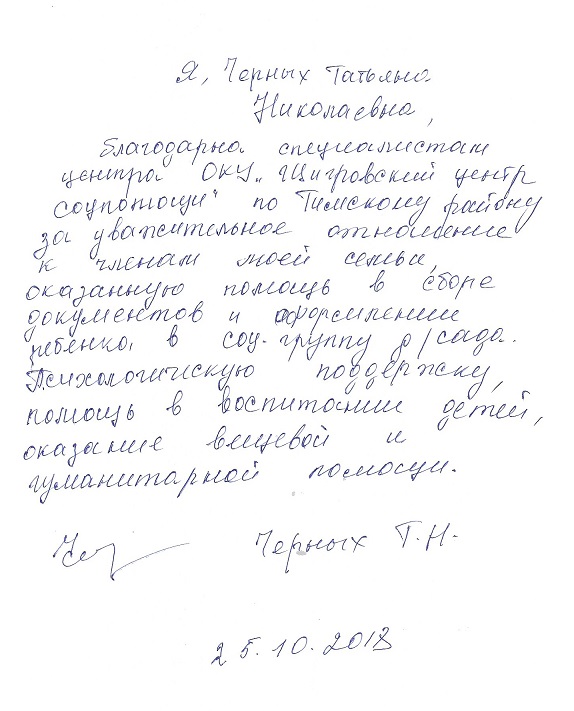 Я, Черных Татьяна
Николаевна,
благодарна специалистам
центра ОКУ „Щигровский центр
соцпомощи" по Тимскому району
за уважительное отношение
к членам моей семьи,
оказанную помощь в сборе
документов и оформлении
ребенка в соц. группу д/сада.
Психологическую поддержку,
помощь в воспитании детей,
оказание вещевой и
гуманитарной помощи.
Черных Т.Н.
25.10.2018